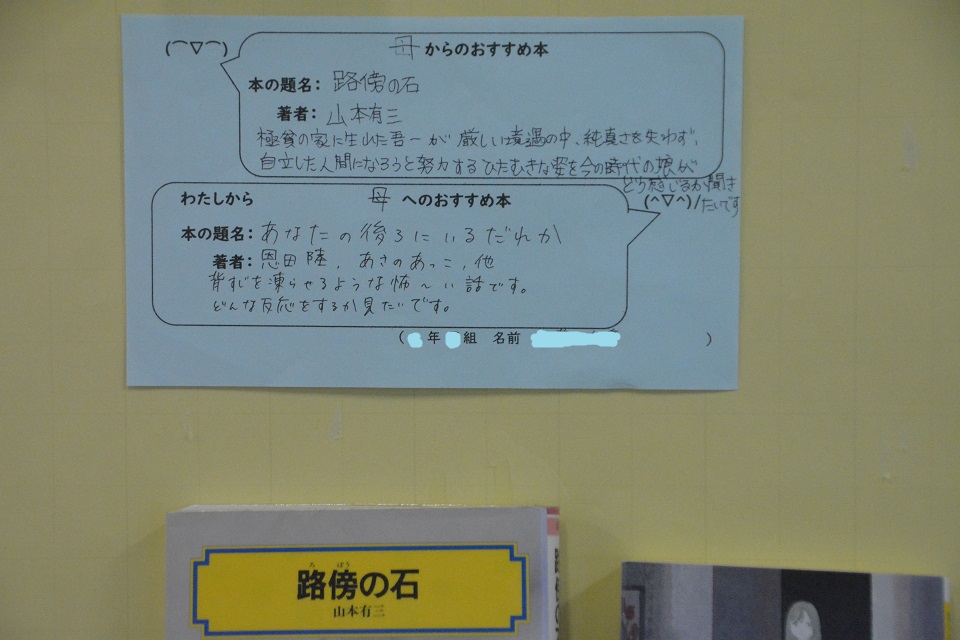 (⌒▽⌒)
母からのおすすめ本
本の題名: 路傍の石
著者: 山本有三
極貧の家に生れた吾一が厳しい境遇の中、純真さを失わず、
自立した人間になろうと努力するひたむきな姿を今の時代の娘が
どう感じるか聞き
たいです
(^▽^)/
わたしから 母へのおすすめ本
本の題名: あなたの後ろにいるだれか
著者: 恩田陸, あさのあつこ, 他
背すじを凍らせるような怖~い話です。
どんな反応をするか見たいです。
( 年 組 名前 )
路傍の石
ろ ぼう
山本有三